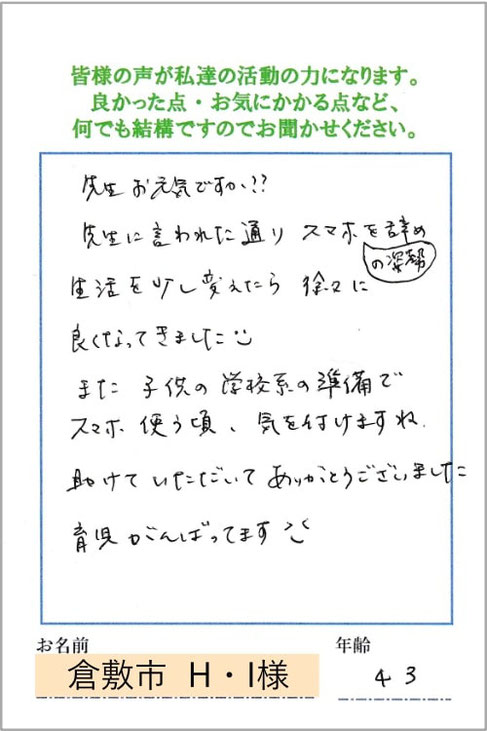 皆様の声が私達の活動の力になります。
良かった点・お気にかかる点など、
何でも結構ですのでお聞かせください。
先生お元気ですか??
先生に言われた通り スマホを辞め
の姿勢
生活を少し変えたら 徐々に
良くなってきました
また 子供の学校系の準備で
スマホ 使う頃、気を付けますね.
助けて いただいて ありがとうございました
育児がんばってます
お名前
年齢
倉敷市 H・I様
43